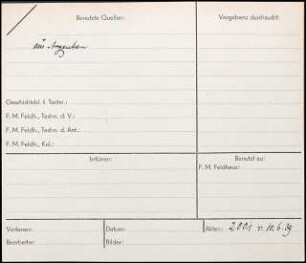 Benutzte Quellen:
Vergebens durchsucht:
Geschichtsbl. f. Techn.:
F. M. Feldh., Techn. d. V.:
F. M. Feldh., Techn. d. Ant.:
F. M. Feldh., Kul.:
Irrtümer:
Benutzt zu:
F. M. Feldhaus:
Verfasser:
Datum:
Akten: 2001 v. 10.6.39
Bearbeiter:
Bilder: